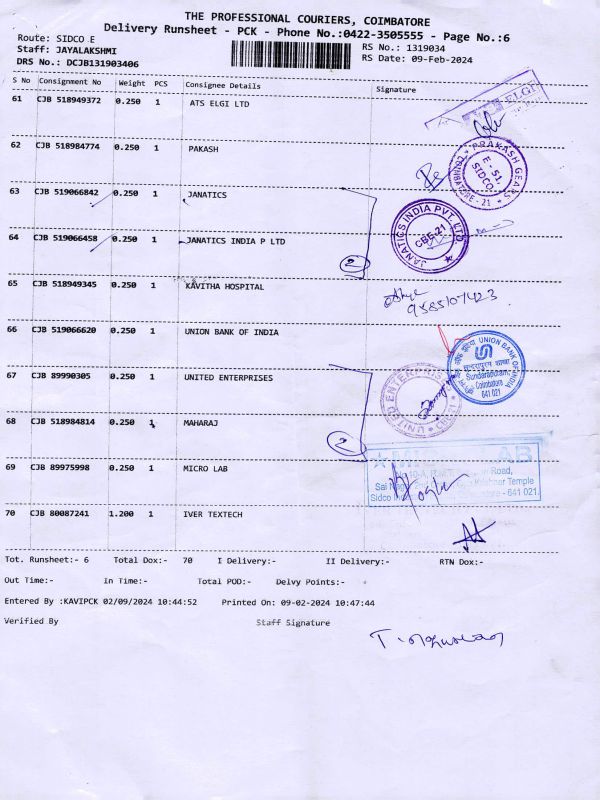 THE PROFESSIONAL COURIERS, COIMBATORE
Delivery Runsheet - PCK - Phone No.:0422-3505555 - Page No.:6
Route: SIDCO E
Staff: JAYALAKSHMI
RS No.: 1319034
DRS No.: DCJB131903406
RS Date: 09-Feb-2024
S No Consignment No Weight PCS Consignee Details Signature
61 CJB 518949372 0.250 1 ATS ELGI LTD
ELGI
62 CJB 518984774 0.250 1 PAKASH
PRAKASH GEARS
E. 51.
SIDCO
63 CJB 519066842 0.250 1 JANATICS
JANATICS INDIA PVT. LTD
CBE-21
64 CJB 519066458 0.250 1 JANATICS INDIA P LTD
2
65 CJB 518949345 0.250 1 KAVITHA HOSPITAL
9585107423
66 CJB 519066620 0.250 1 UNION BANK OF INDIA
UNION BANK OF INDIA
Sundarapuram
Coimbatore
641 021
67 CJB 89990305 0.250 1 UNITED ENTERPRISES
UNITED ENTERPRISES
68 CJB 518984814 0.250 1 MAHARAJ
2
69 CJB 89975998 0.250 1 MICRO LAB
LAB
Road,
Temple
641 021.
70 CJB 80087241 1.200 1 IVER TEXTECH
Tot. Runsheet:- 6 Total Dox:- 70 I Delivery:- II Delivery:- RTN Dox:-
Out Time:- In Time:- Total POD:- Delvy Points:-
Entered By :KAVIPCK 02/09/2024 10:44:52 Printed On: 09-02-2024 10:47:44
Verified By Staff Signature